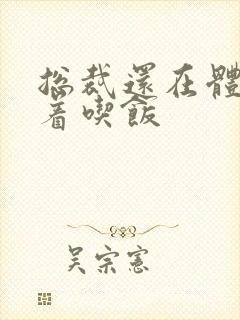 總裁還在體
着喫飯
吴宗憲